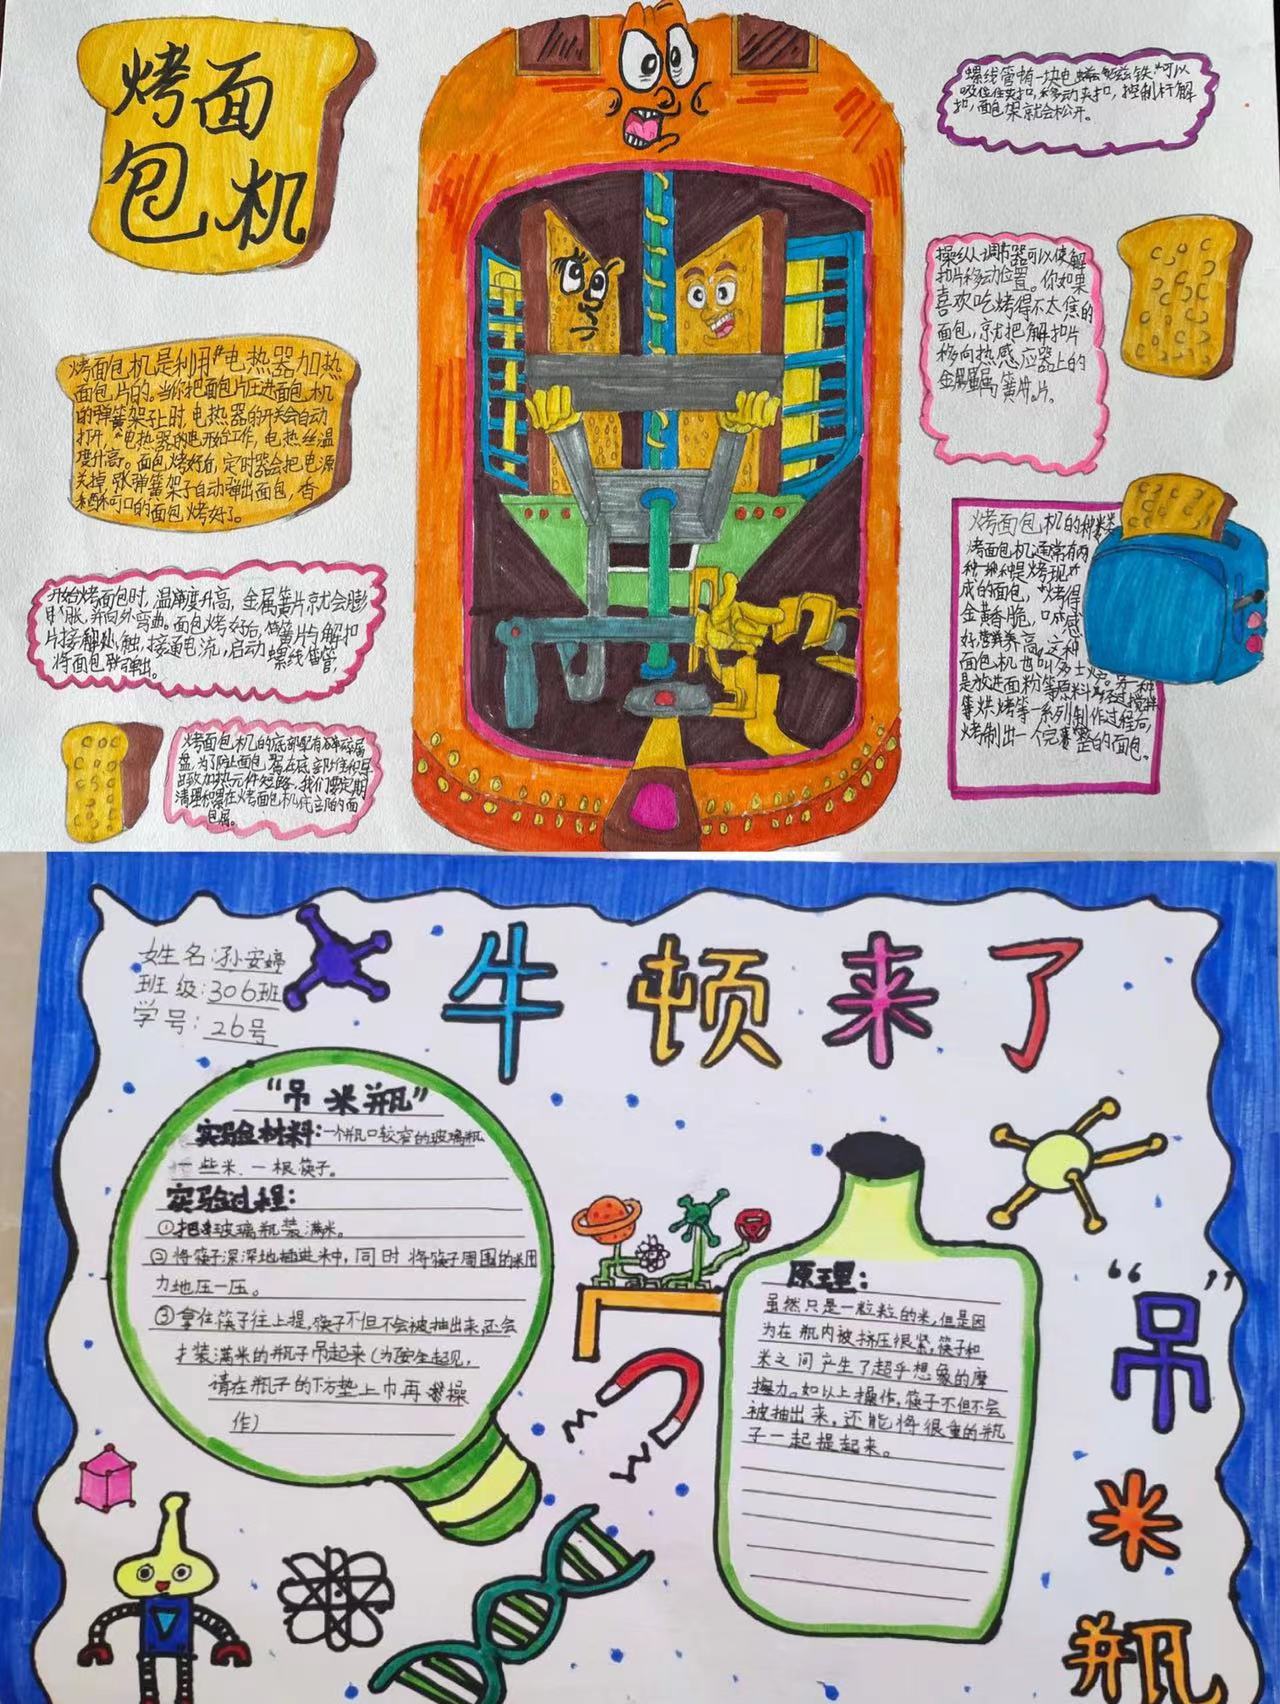 烤面
包机
烤面包机是利用“电热器加热
面包片的。当你把面包片压进面包机
的弹簧架子上时,电热器的开关会自动
打开,电热器开始工作,电热丝温
度升高。面包烤好后,定时器会把电源
关掉,弹簧架子自动弹出面包,香
可口的面包烤好了。
开始烤面包时,温度升高,金属簧片就会膨
胀,并向外弯曲。面包烤好后,簧片与解扣
片接触,接通电流,启动螺线管,
将面包弹出。
烤面包机的底部配有碎屑
盘,为了防止面包屑在底部堆积导
致加热元件短路,我们要定期
清理积累在烤面包机底部的面
包屑。
螺线管有一块电磁铁,可以
吸住住夹扣,移动夹扣,控制杆解
扣,面包架就会松开。
操纵调节器可以使解
扣片移动位置。你如果
喜欢吃烤得不太焦的
面包,就把解扣片
移向热感应器上的
金属簧片。
烤面包机的种类
烤面包机通常有两
种,一种是烤现
成的面包,烤得
金黄香脆,口感
好营养高,这种
面包机也叫多士炉。另一种
是放进面粉等原料经过搅拌
等烘烤等一系列制作过程后,
烤制出一个完整的面包。
姓名:孙安婷
班级:306班
学号:26号
牛顿来了
“吊米瓶”
实验材料:一个瓶口较窄的玻璃瓶
一些米、一根筷子。
实验过程:
①把玻璃瓶装满米。
②将筷子深深地插进米中,同时将筷子周围的米用
力地压一压。
③拿住筷子往上提,筷子不但不会被抽出来还会
把装满米的瓶子吊起来(为安全起见,
请在瓶子的下方垫上巾再操
作)
原理:
虽然只是一粒粒的米,但是因
为在瓶内被挤压很紧,筷子和
米之间产生了超乎想象的摩
擦力。如以上操作,筷子不但不会
被抽出来,还能将很重的瓶
子一起提起来。
“吊”
米
瓶